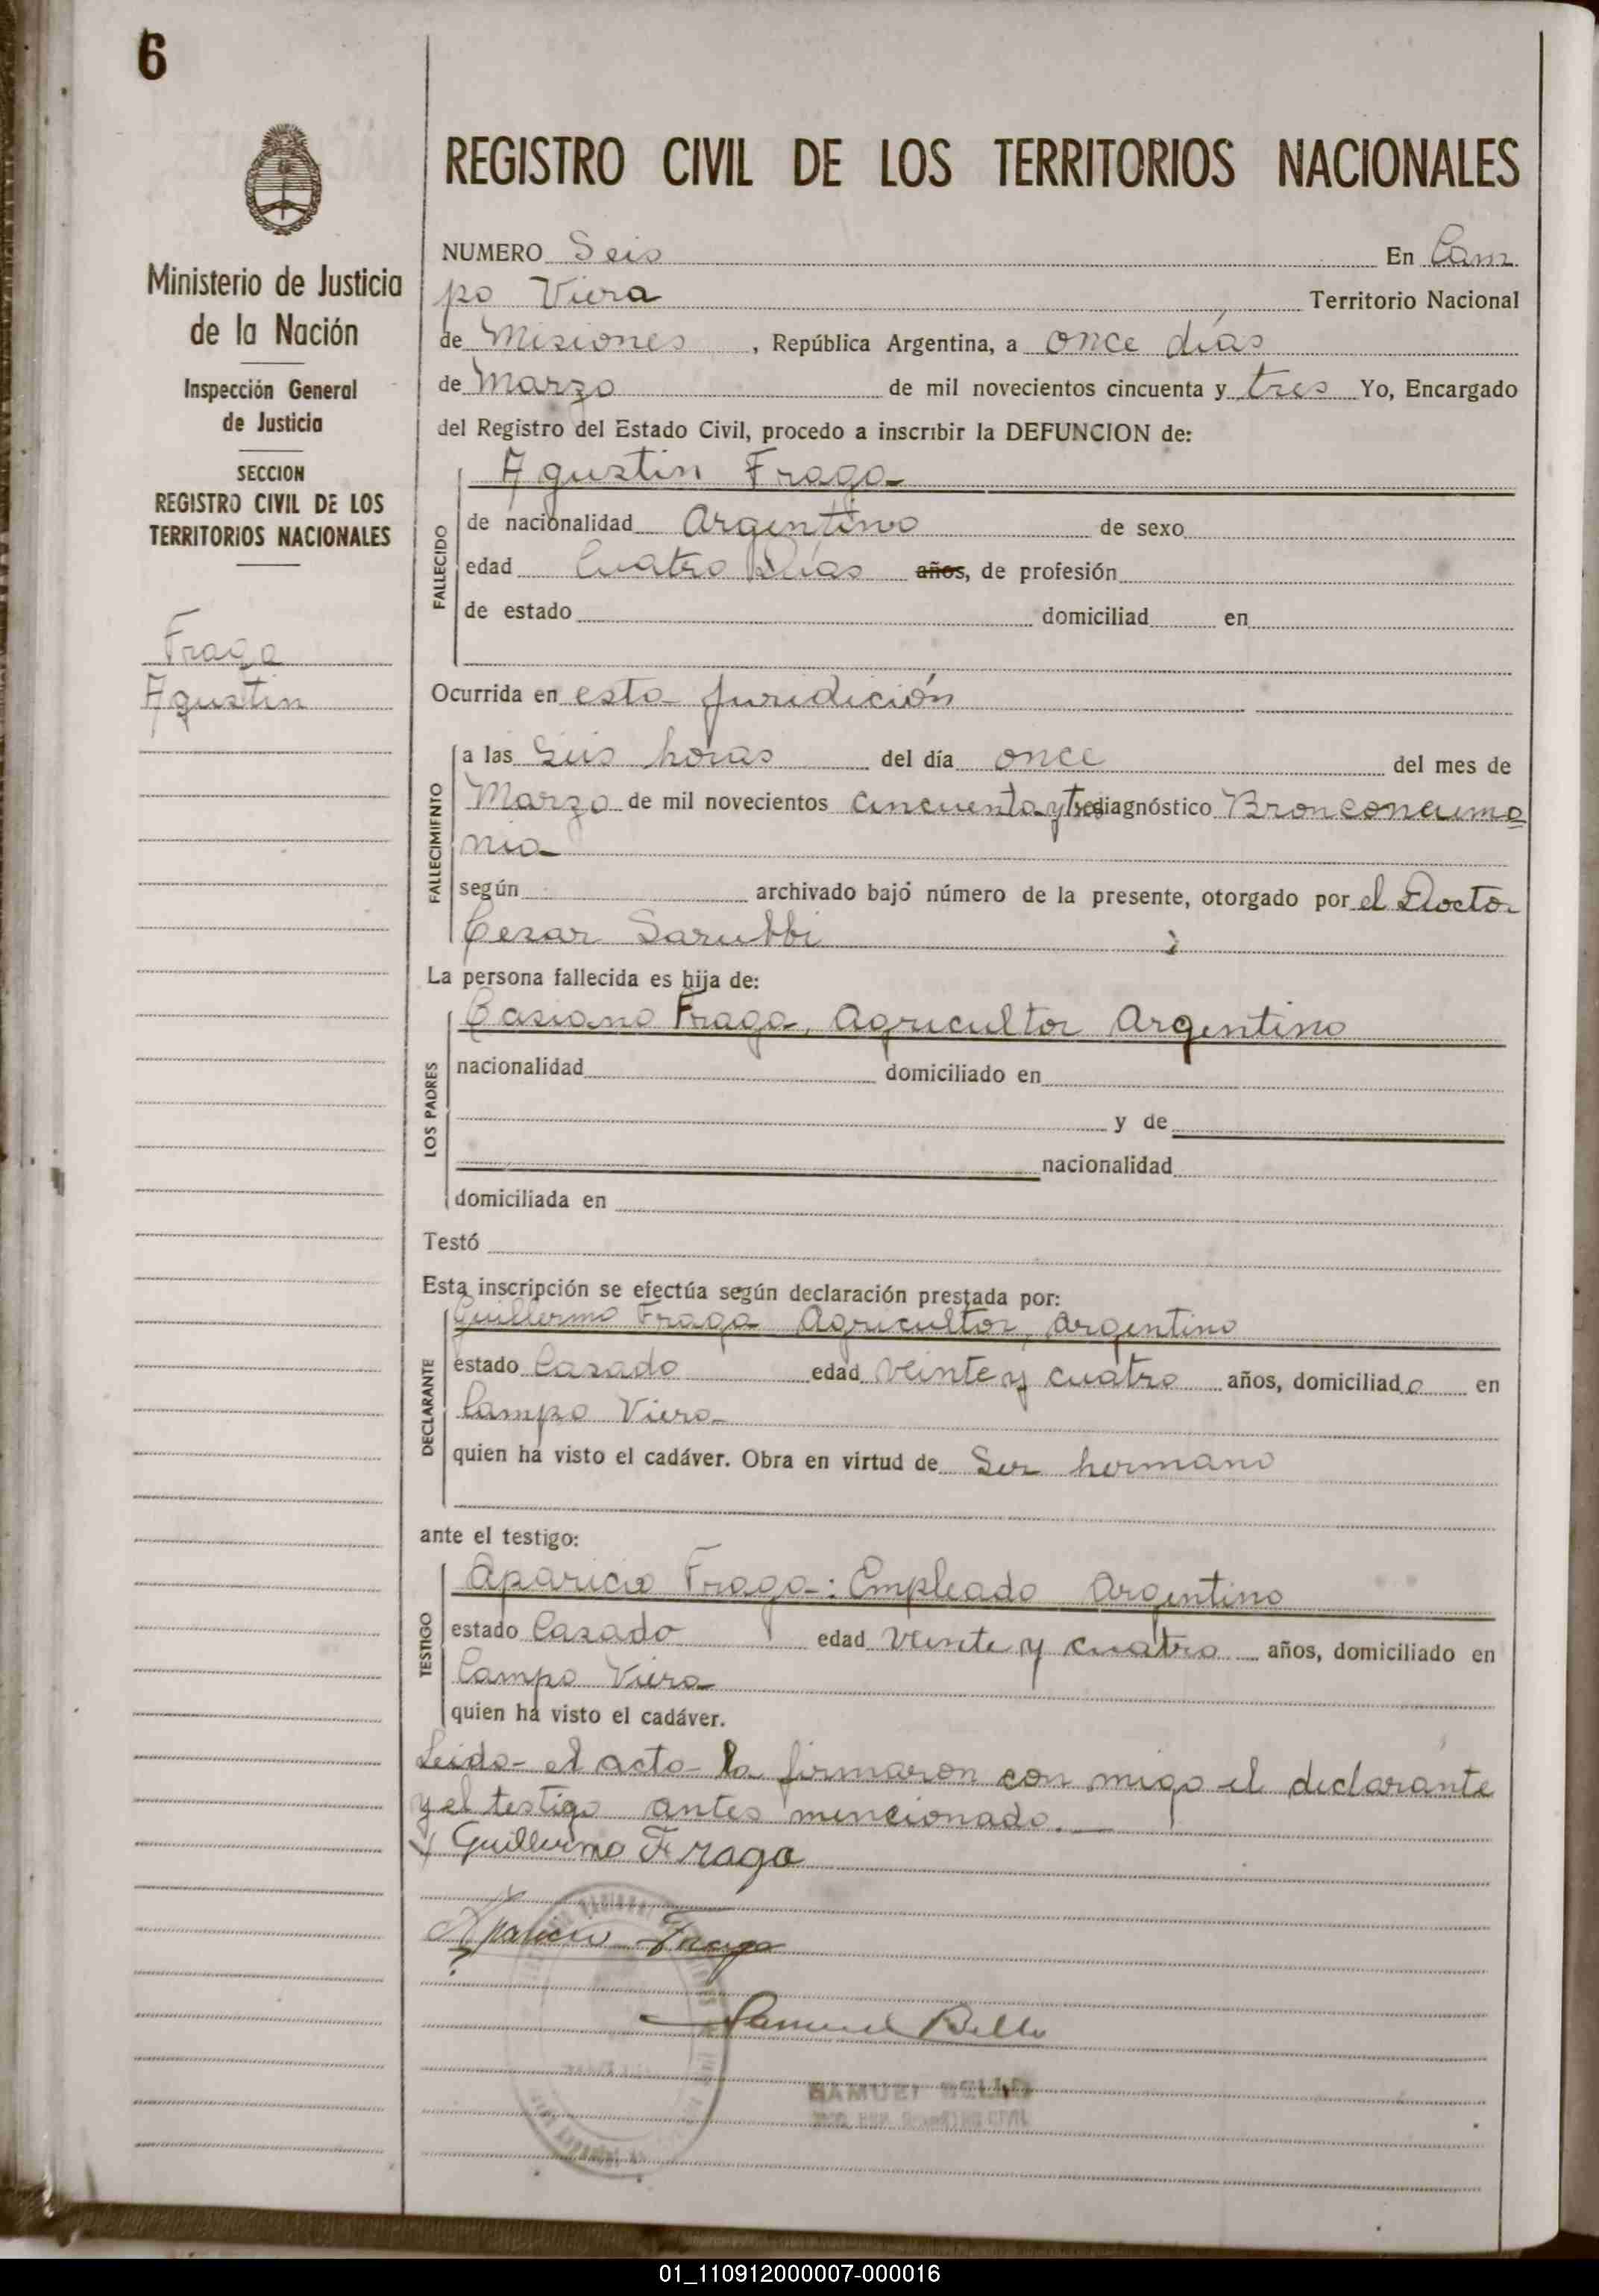 6
REGISTRO CIVIL DE LOS TERRITORIOS NACIONALES
Ministerio de Justicia
de la Nación
Inspección General
de Justicia
SECCION
REGISTRO CIVIL DE LOS
TERRITORIOS NACIONALES
Fraga
Agustin
NUMERO Seis En Cam
po Viera Territorio Nacional
de Misiones, República Argentina, a once días
de Marzo de mil novecientos cincuenta y tres Yo, Encargado
del Registro del Estado Civil, procedo a inscribir la DEFUNCION de:
Agustin Fraga
FALLECIDO
de nacionalidad Argentino de sexo
edad Cuatro Días años, de profesión
de estado domiciliad en
Ocurrida en esta juridición
FALLECIMIENTO
a las Seis horas del día once del mes de
Marzo de mil novecientos cincuenta y tres diagnóstico Bronconeumo
nia
según archivado bajo número de la presente, otorgado por el Doctor
Cesar Sarubbi
La persona fallecida es hija de:
LOS PADRES
Casiano Fraga, Agricultor Argentino
nacionalidad domiciliado en
y de
nacionalidad
domiciliada en
Testó
Esta inscripción se efectúa según declaración prestada por:
DECLARANTE
Guillermo Fraga Agricultor, Argentino
estado Casado edad veinte y cuatro años, domiciliado en
Campo Viera
quien ha visto el cadáver. Obra en virtud de Ser hermano
ante el testigo:
TESTIGO
Aparicio Fraga: Empleado Argentino
estado Casado edad veinte y cuatro años, domiciliado en
Campo Viera
quien ha visto el cadáver.
Leida el acta la firmaron con migo el declarante
y el testigo antes mencionado.
Guillermo Fraga
Aparicio Fraga
Samuel Bello
SAMUEL BELLO
REGISTRO CIVIL
01_110912000007-000016